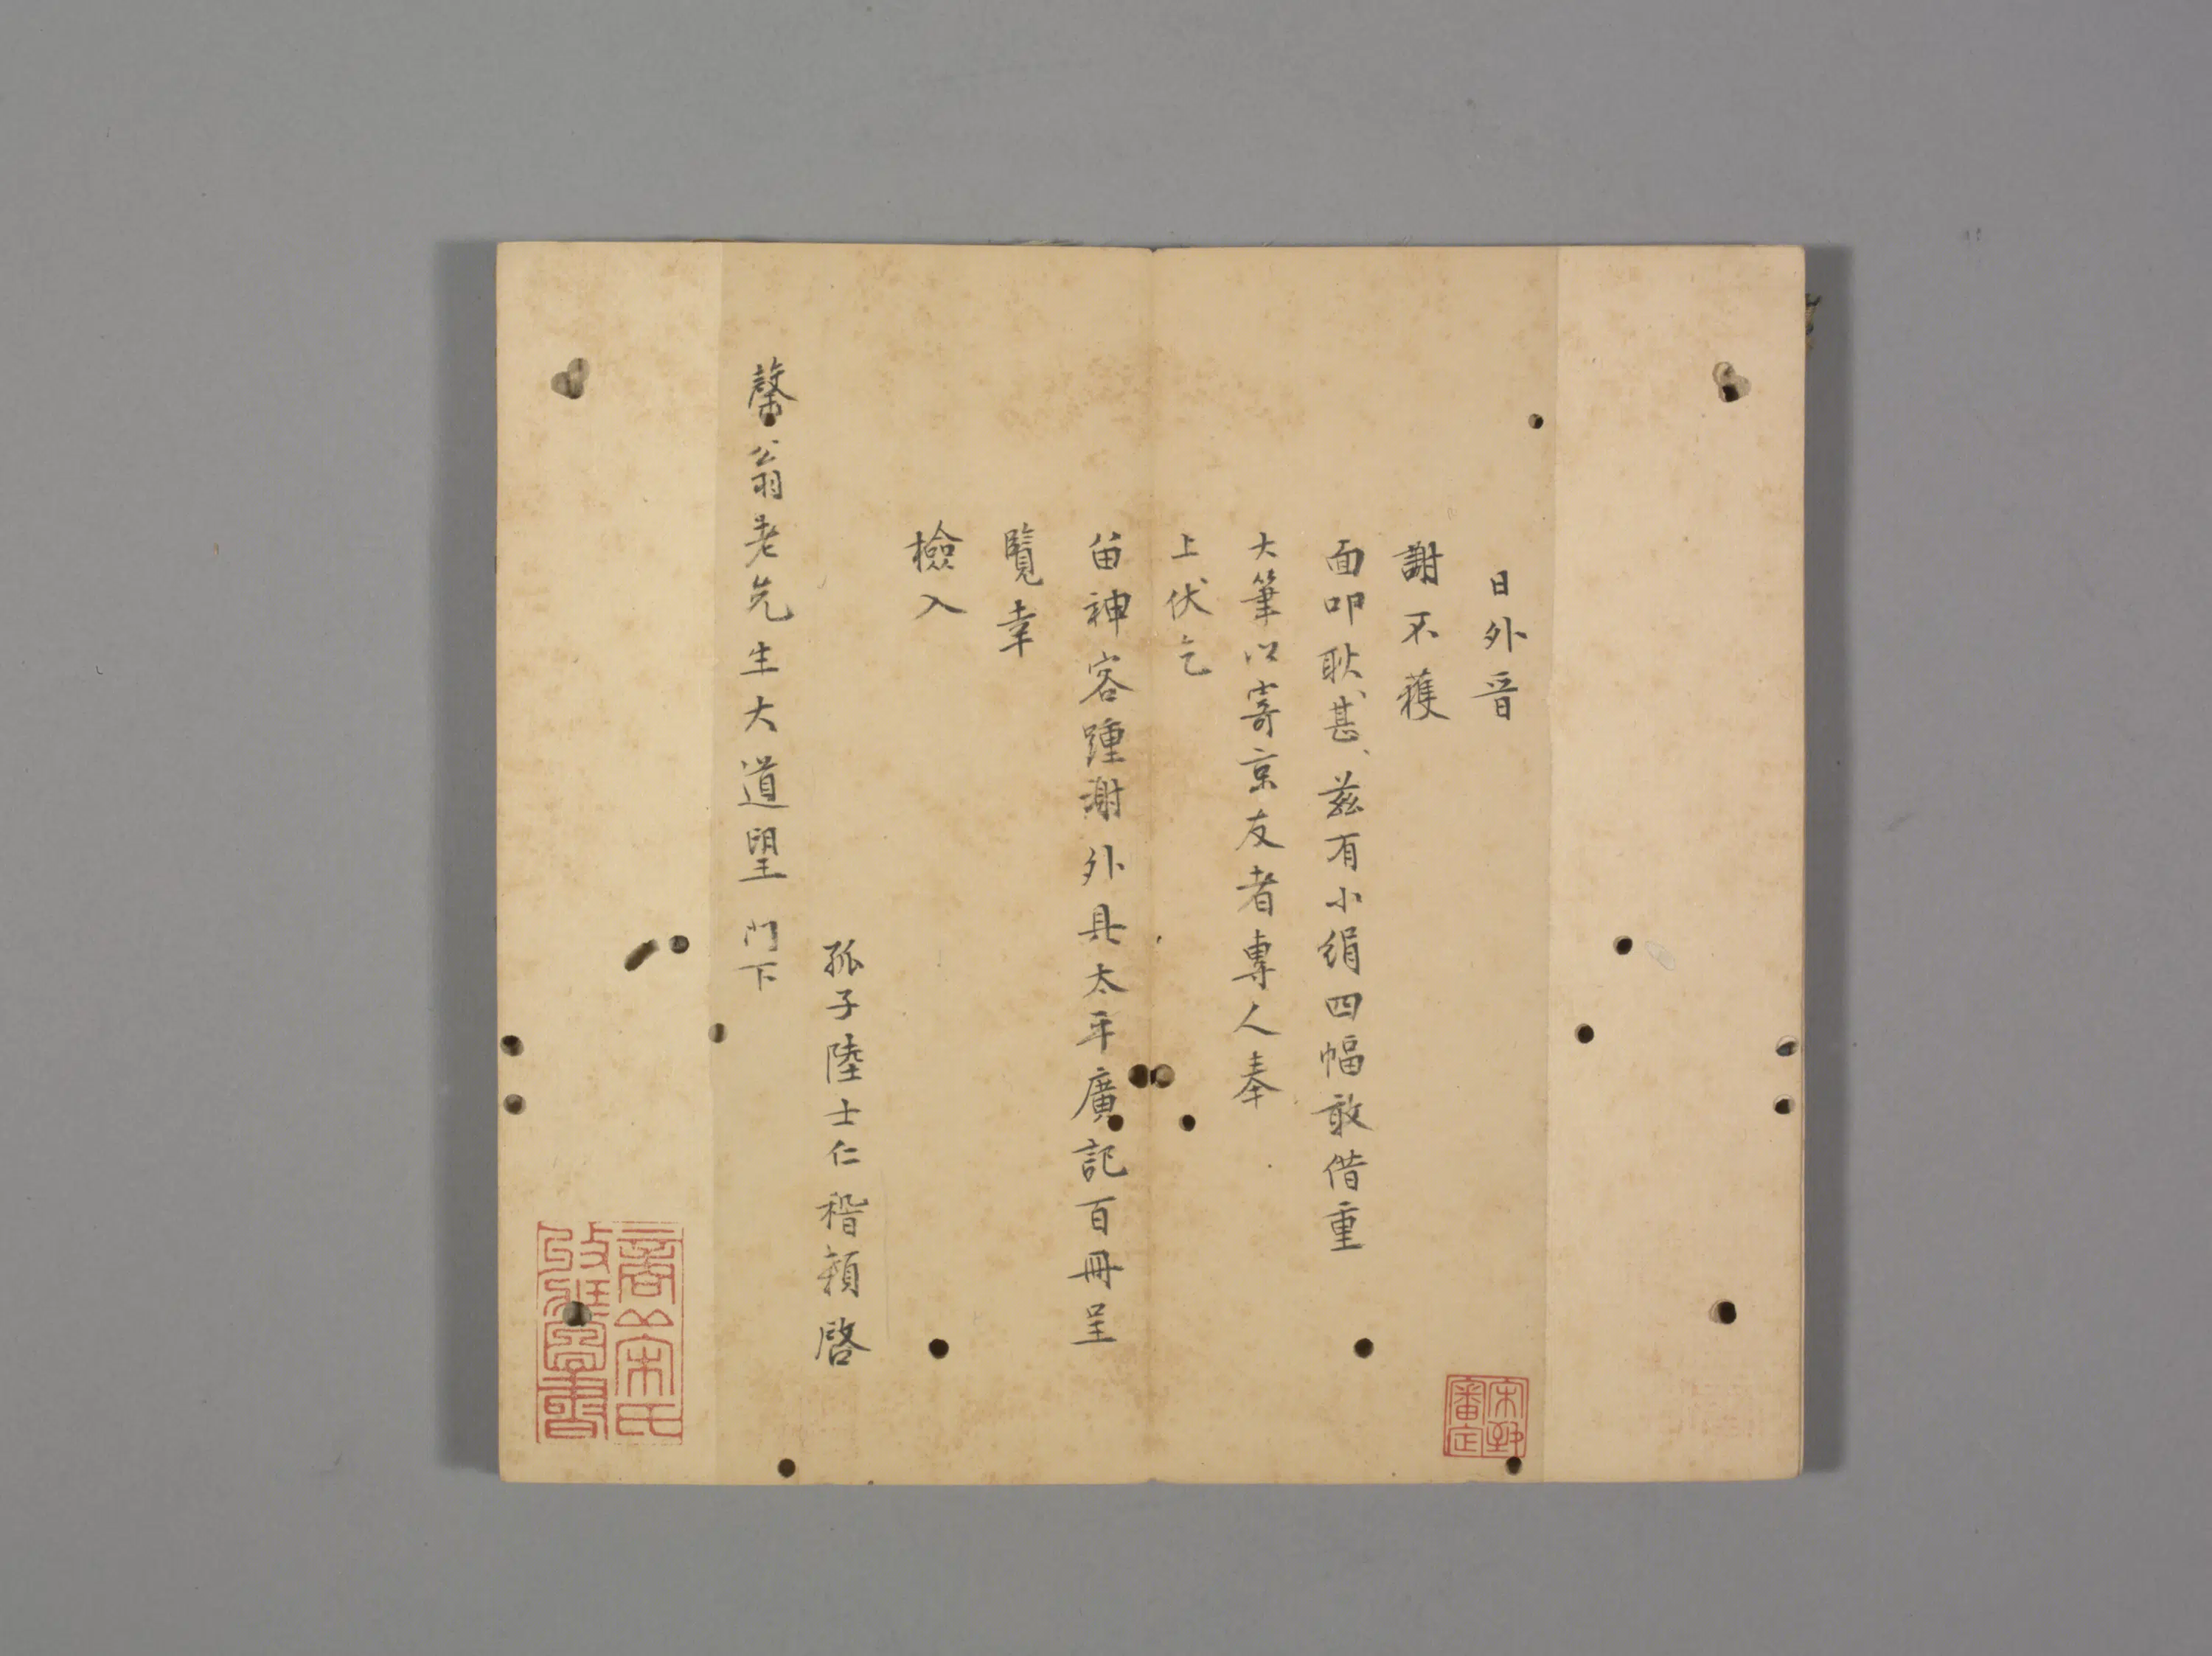 日外晉
謝不穫
面叩耿甚、茲有小絹四幅敢借重
大筆以寄京友者專人奉
上伏乞
留神容踵謝外具太平廣記百冊呈
覽幸
檢入
孤子陸士仁稽顙啓
馨翁老先生大道望 門下
商丘宋氏收藏善書
審定